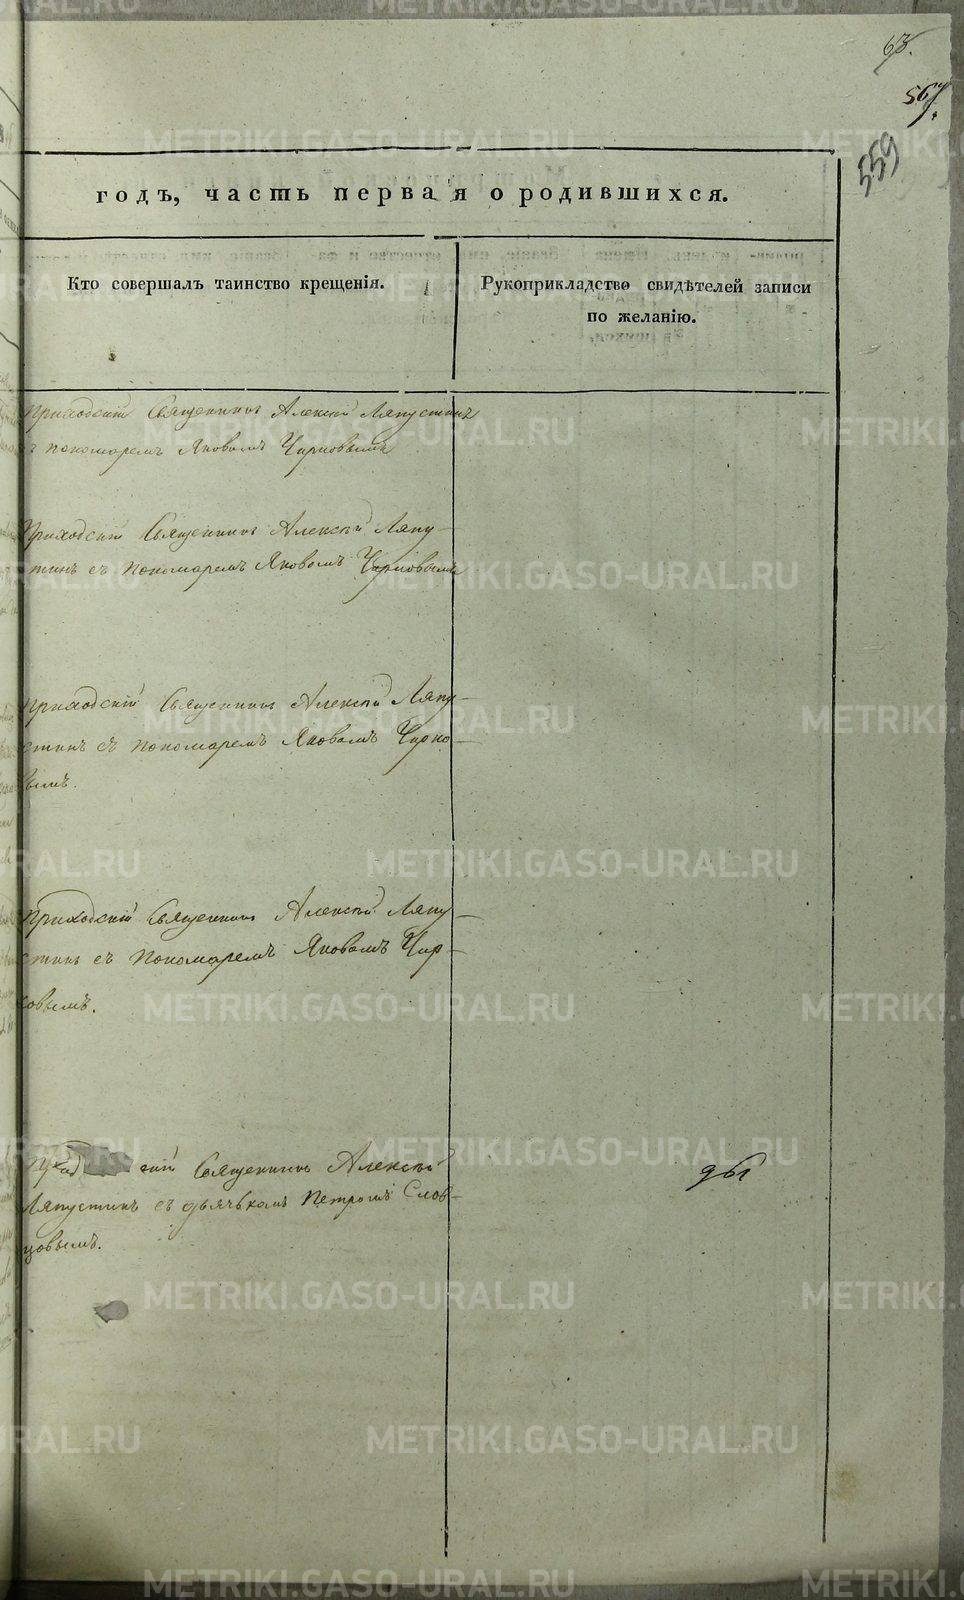 63.
567.
559
годъ, часть первая о родившихся.
Кто совершалъ таинство крещенія.
Рукоприкладство свидѣтелей записи
по желанію.
Приходскій Священникъ Алексѣй Ляпустинъ
съ пономаремъ Яковомъ Чирковымъ
Приходскій Священникъ Алексѣй Ляпу-
стинъ съ пономаремъ Яковомъ Чирковымъ
Приходскій Священникъ Алексѣй Ляпу-
стинъ съ пономаремъ Яковомъ Чирко-
вымъ.
Приходскій Священникъ Алексѣй Ляпу-
стинъ съ пономаремъ Яковомъ Чир-
ковымъ.
скій Священникъ Алексѣй
Ляпустинъ съ дьячькомъ Петромъ Слов-
цовымъ.
METRIKI.GASO-URAL.RU